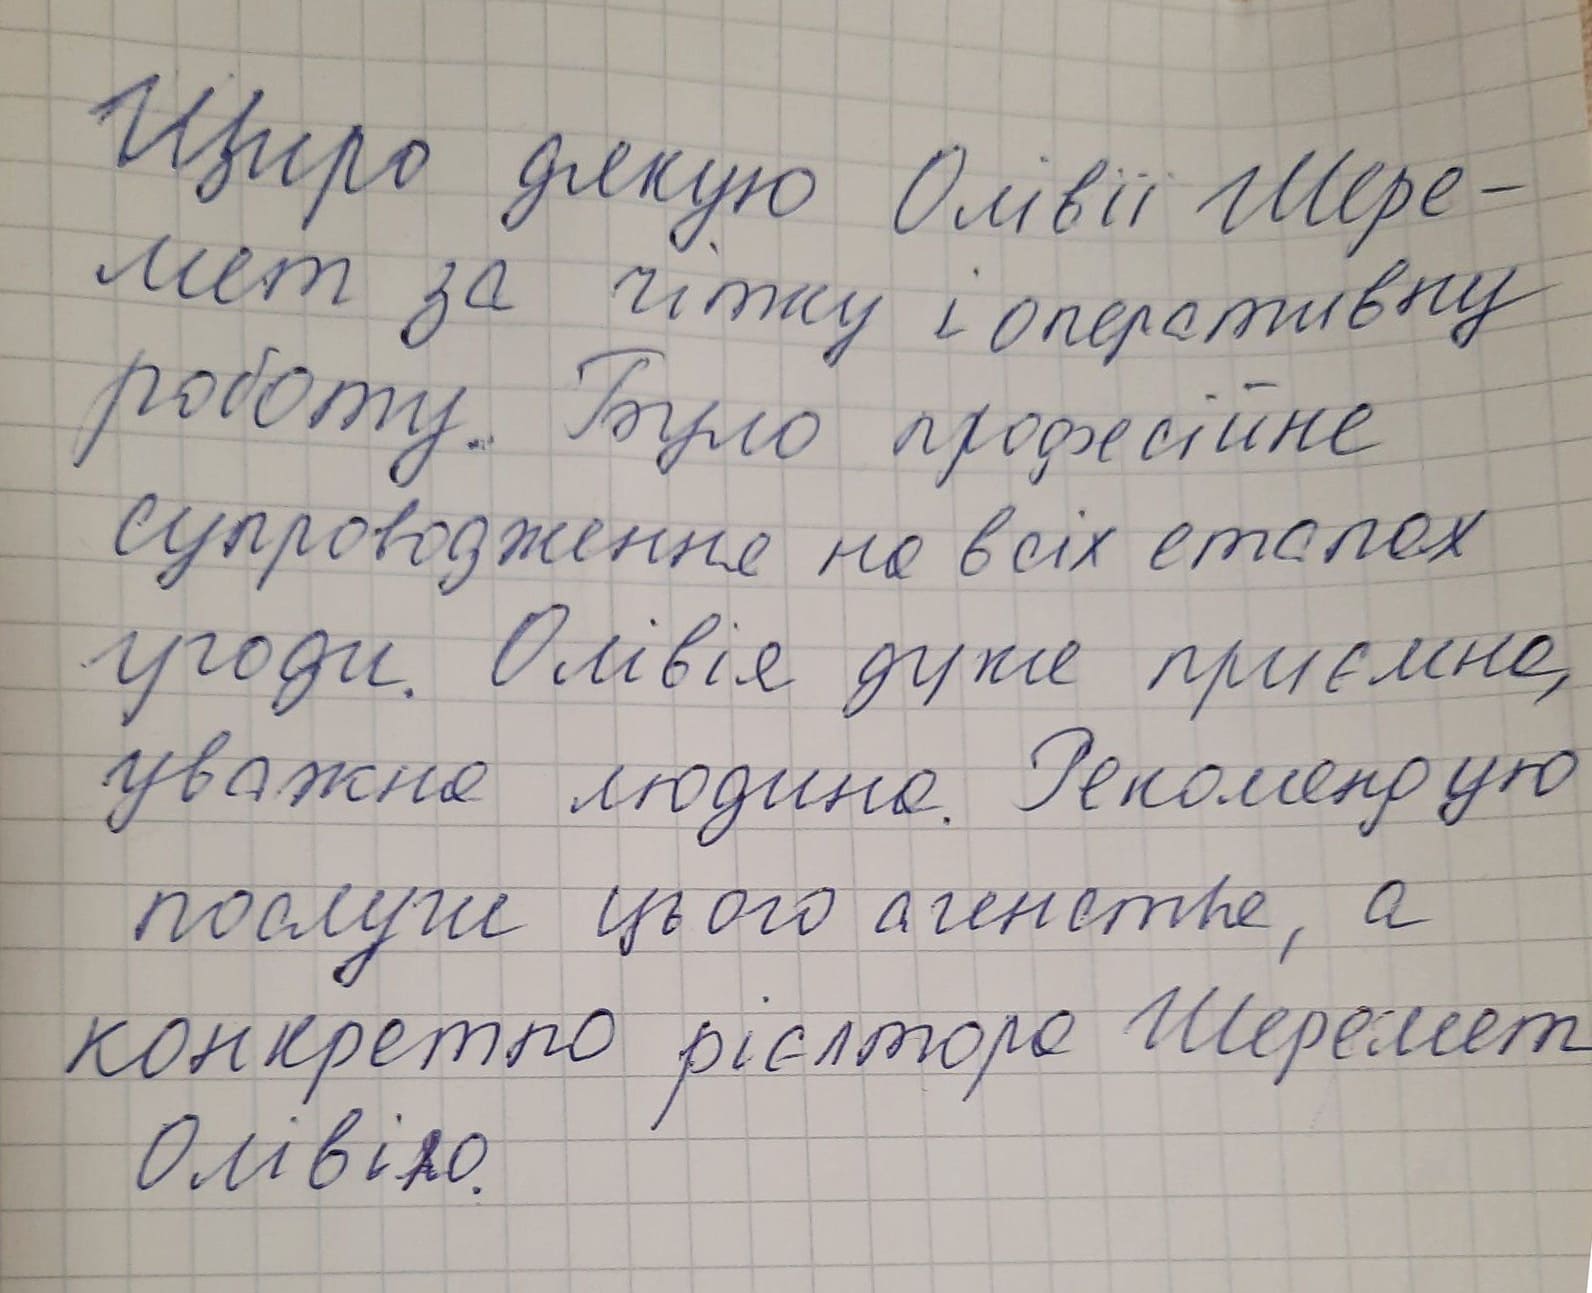 Щиро дякую Олівії Шере-
мет за чітку і оперативну
роботу. Було професійне
супроводження на всіх етапах
угоди. Олівія дуже приємна,
уважна людина. Рекомендую
послуги цього агенства, а
конкретно рієлтора Шеремет
Олівію.